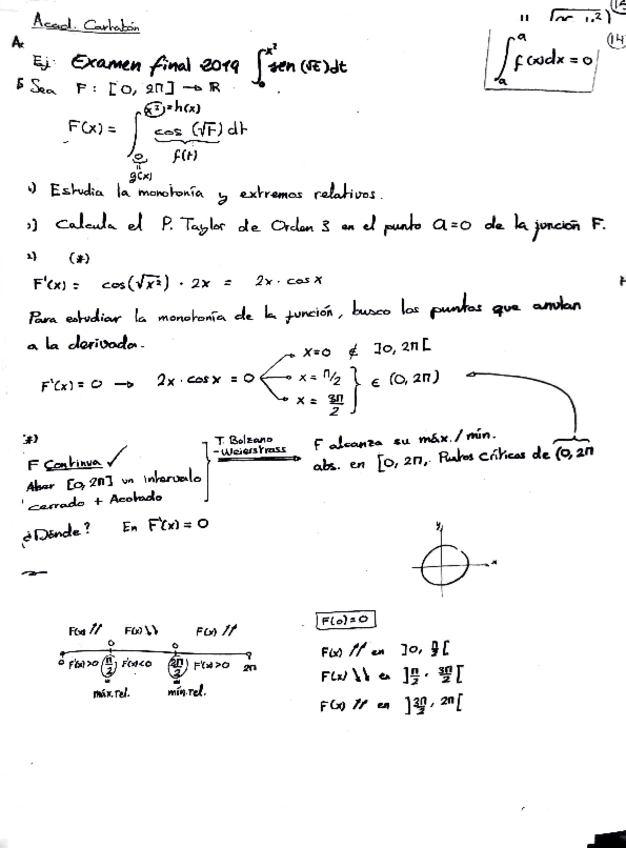 Acad. Carthabón
∫ₐᵃ f(x)dx = 0
(14
Ej: Examen final 2019 ∫₀^x² sen (√t) dt
Sea F: [0, 2π] → ℝ
F(x) = ∫₀^x² cos (√t) dt
x² = h(x)
f(t)
0 = g(x)
1) Estudia la monotonía y extremos relativos.
2) Calcula el P. Taylor de Orden 3 en el punto a=0 de la función F.
1) (*)
F'(x) = cos(√x²) · 2x = 2x · cos x
Para estudiar la monotonía de la función, busco los puntos que anulan
a la derivada.
F'(x) = 0 → 2x · cos x = 0
x=0 ∉ ]0, 2π[
x = π/2
x = 3π/2
∈ (0, 2π)
*)
F Continua ✓
[0, 2π] un intervalo
cerrado + Acotado
T. Bolzano
-Weierstrass
F alcanza su máx./mín.
abs. en [0, 2π, Puntos críticos de (0, 2π
¿Dónde? En F'(x) = 0
y
x
F(x) // F(x) \\ F(x) //
0 F'(x)>0 π/2 F'(x)<0 3π/2 F'(x)>0 2π
máx.rel. mín.rel.
F(0)=0
F(x) // en ]0, π/2[
F(x) \\ en ]π/2, 3π/2[
F(x) // en ]3π/2, 2π[